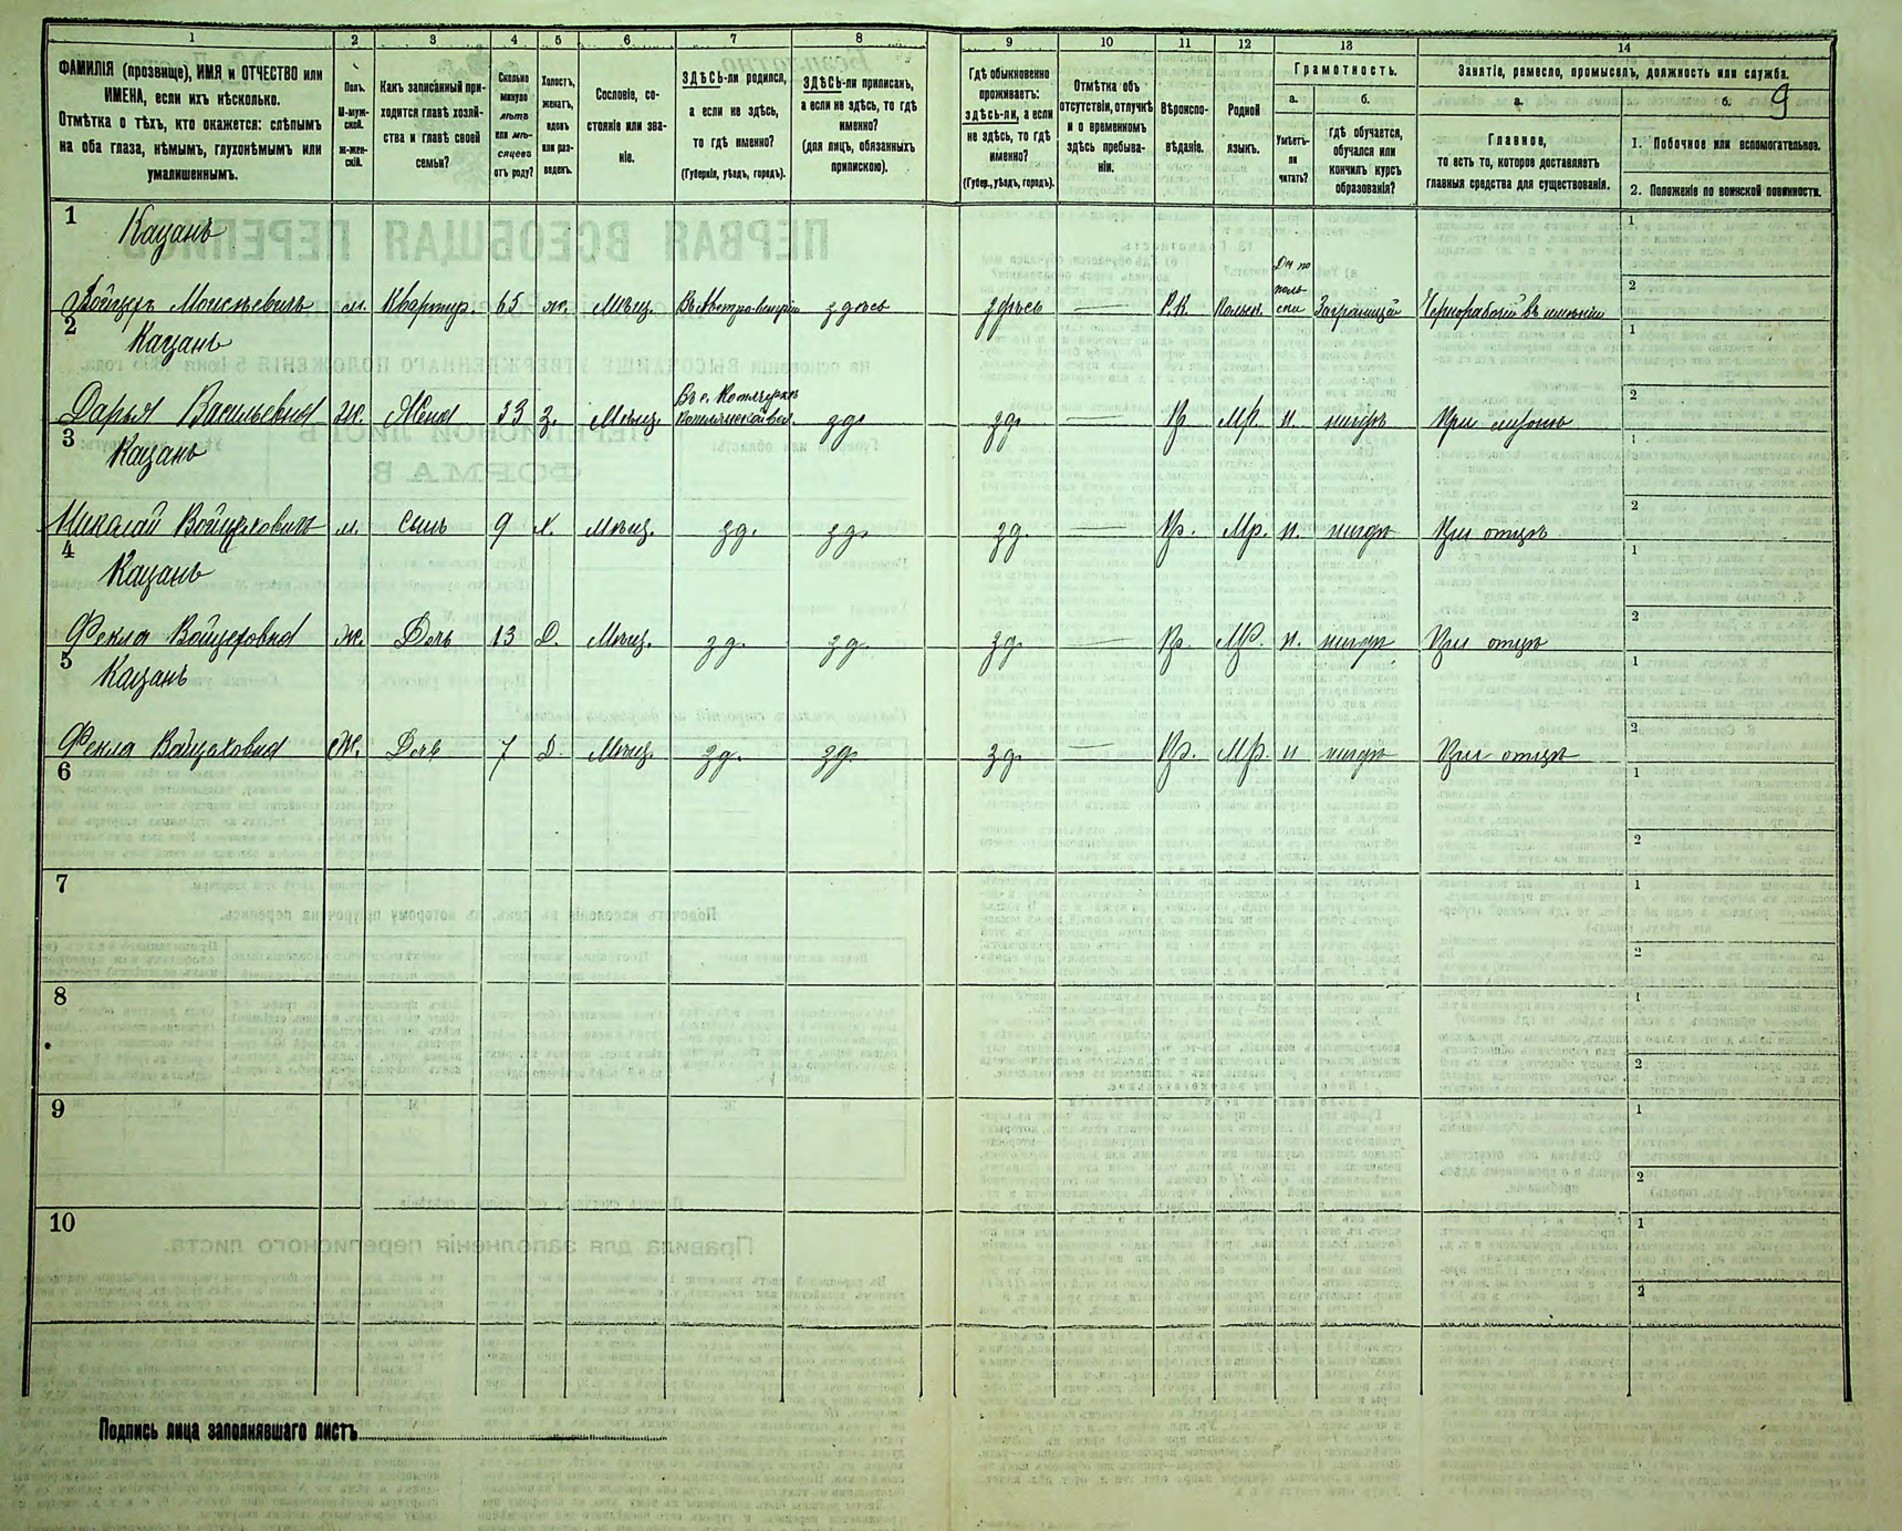 1 2 3 4 5 6 7 8 9 10 11 12 13 14
9
ФАМИЛІЯ (прозвище), ИМЯ и ОТЧЕСТВО или
ИМЕНА, если ихъ нѣсколько.
Отмѣтка о тѣхъ, кто окажется: слѣпымъ
на оба глаза, нѣмымъ, глухонѣмымъ или
умалишеннымъ.
Полъ.
М-муж-
ской.
ж-жен-
скій.
Какъ записанный при-
ходится главѣ хозяй-
ства и главѣ своей
семьи?
Сколько
минуло
лѣтъ
или мѣ-
сяцевъ
отъ роду?
Холостъ,
женатъ,
вдовъ
или раз-
веденъ.
Сословіе, со-
стояніе или зва-
ніе.
ЗДѢСЬ-ли родился,
а если не здѣсь,
то гдѣ именно?
(Губернія, уѣздъ, городъ).
ЗДѢСЬ-ли приписанъ,
а если не здѣсь, то гдѣ
именно?
(для лицъ, обязанныхъ
припискою).
Гдѣ обыкновенно
проживаетъ:
здѣсь-ли, а если
не здѣсь, то гдѣ
именно?
(Губер., уѣздъ, городъ).
Отмѣтка объ
отсутствіи, отлучкѣ
и о временномъ
здѣсь пребыва-
ніи.
Вѣроиспо-
вѣданіе.
Родной
языкъ.
Грамотность.
а.
Умѣетъ-
ли
читать?
б.
гдѣ обучается,
обучался или
кончилъ курсъ
образованія?
Занятіе, ремесло, промыселъ, должность или служба.
а.
Главное,
то есть то, которое доставляетъ
главныя средства для существованія.
б.
1. Побочное или вспомогательное.
2. Положеніе по воинской повинности.
1 Казанъ 1
Войцехъ Моисѣевичъ м. Квартир. 65 ж. Мѣщ. здѣсь здѣсь — Р.К. Польск. Да по поль- ски Заграницей Чернорабочій въ имѣніи 2
2 Казанъ 1
Дарья Васильевна ж. Жена 33 з. Мѣщ. зд. зд. — Пр Мр. н нигдѣ При мужѣ 2
3 Казанъ 1
Николай Войцеховичъ м. Сынъ 9 х. Мѣщ. зд. зд. зд. — Пр. Мр. н. нигдѣ При отцѣ 2
4 Казанъ 1
Фекла Войцеховна ж. Дочь 13 Д. Мѣщ. зд. зд. зд. — Пр. Мр. н. нигдѣ При отцѣ 2
5 Казанъ 1
Фекла Войцеховна ж. Дочь 7 Д. Мѣщ. зд. зд. зд. — Пр. Мр. н нигдѣ При отцѣ 2
6 1
2
7 1
2
8 1
2
9 1
2
10 1
2
Подпись лица заполнявшаго листъ